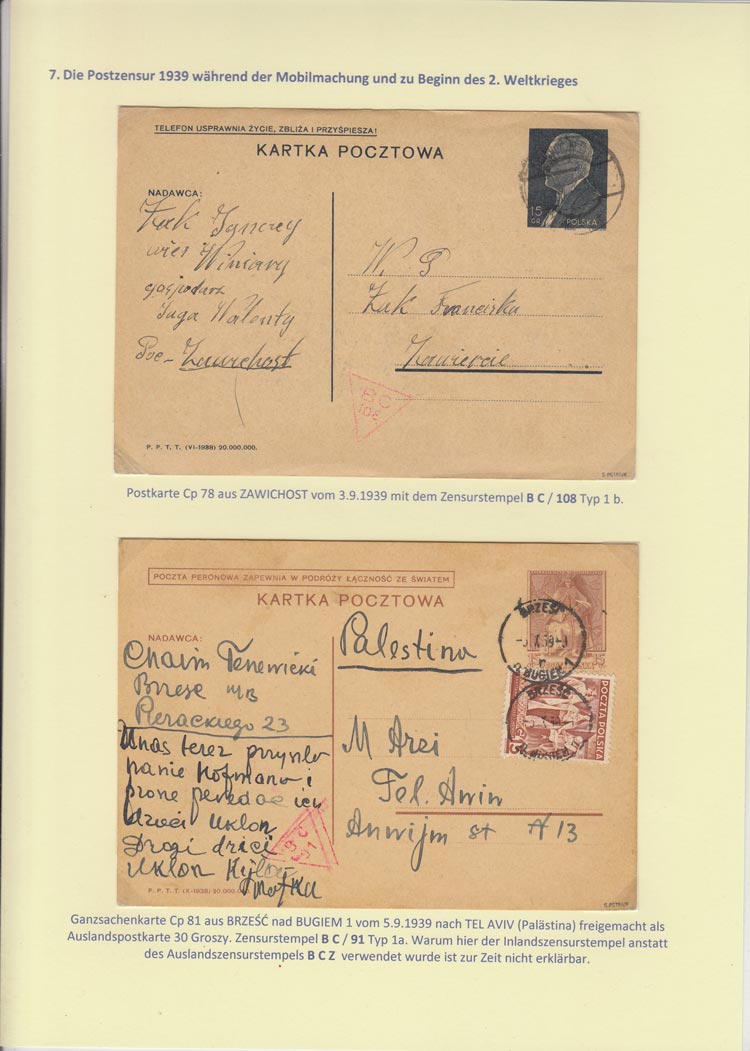 7. Die Postzensur 1939 während der Mobilmachung und zu Beginn des 2. Weltkrieges
TELEFON USPRAWNIA ŻYCIE, ZBLIŻA I PRZYŚPIESZA!
KARTKA POCZTOWA
15 GR
POLSKA
NADAWCA:
Żak Ignacy
wieś Winiary
gospodarz
Juga Walenty
Zawichost
W. P
Żak Franciska
Zawiercie
B C
108
P. P. T. T. (VI-1938) 20.000.000.
Postkarte Cp 78 aus ZAWICHOST vom 3.9.1939 mit dem Zensurstempel B C / 108 Typ 1 b.
POCZTA PERONOWA ZAPEWNIA W PODRÓŻY ŁĄCZNOŚĆ ZE ŚWIATEM
KARTKA POCZTOWA
BRZEŚĆ
N. BUGIEM 1
15
BRZEŚĆ
N. BUGIEM 1
POCZTA POLSKA
15
NADAWCA:
Chaim Tenewicki
Brzesc n/B
Pierackiego 23
Palestina
Unas terez przyszla
panie Hofmana i
prone peredac ich
dzieci Uklon
Drogi dzieci
Uklon
Matka
M Arzi
Tel. Awiw
Anwijm st № 13
B C
91
P. P. T. T. (X-1938) 20.000.000.
Ganzsachenkarte Cp 81 aus BRZEŚĆ nad BUGIEM 1 vom 5.9.1939 nach TEL AVIV (Palästina) freigemacht als
Auslandspostkarte 30 Groszy. Zensurstempel B C / 91 Typ 1a. Warum hier der Inlandszensurstempel anstatt
des Auslandszensurstempels B C Z verwendet wurde ist zur Zeit nicht erklärbar.